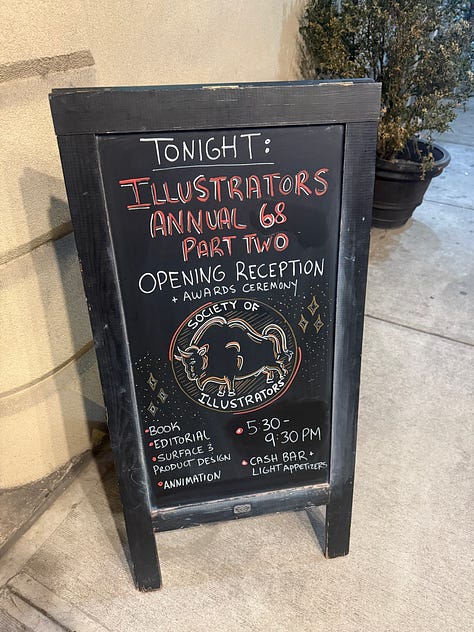 TONIGHT:
ILLUSTRATORS
ANNUAL 68
PART TWO
OPENING RECEPTION
+ AWARDS CEREMONY
SOCIETY OF
ILLUSTRATORS
•BOOK
•EDITORIAL
•SURFACE &
PRODUCT DESIGN
•ANNIMATION
• 5:30-
9:30 PM
• CASH BAR +
LIGHT APPETIZERS